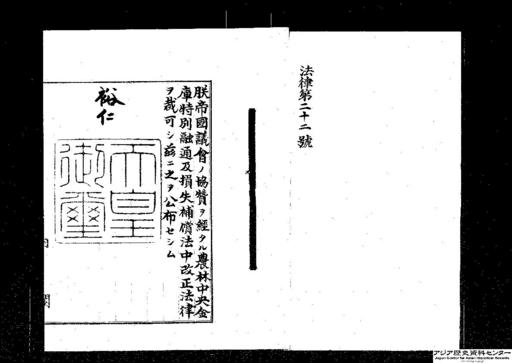 法律第二十二號
朕帝國議會ノ協贊ヲ經タル農林中央金
庫特別融通及損失補償法中改正法律
ヲ裁可シ茲ニ之ヲ公布セシム
裕仁
天皇
御璽
内
閣
アジア歴史資料センター
Japan Center for Asian Historical Records